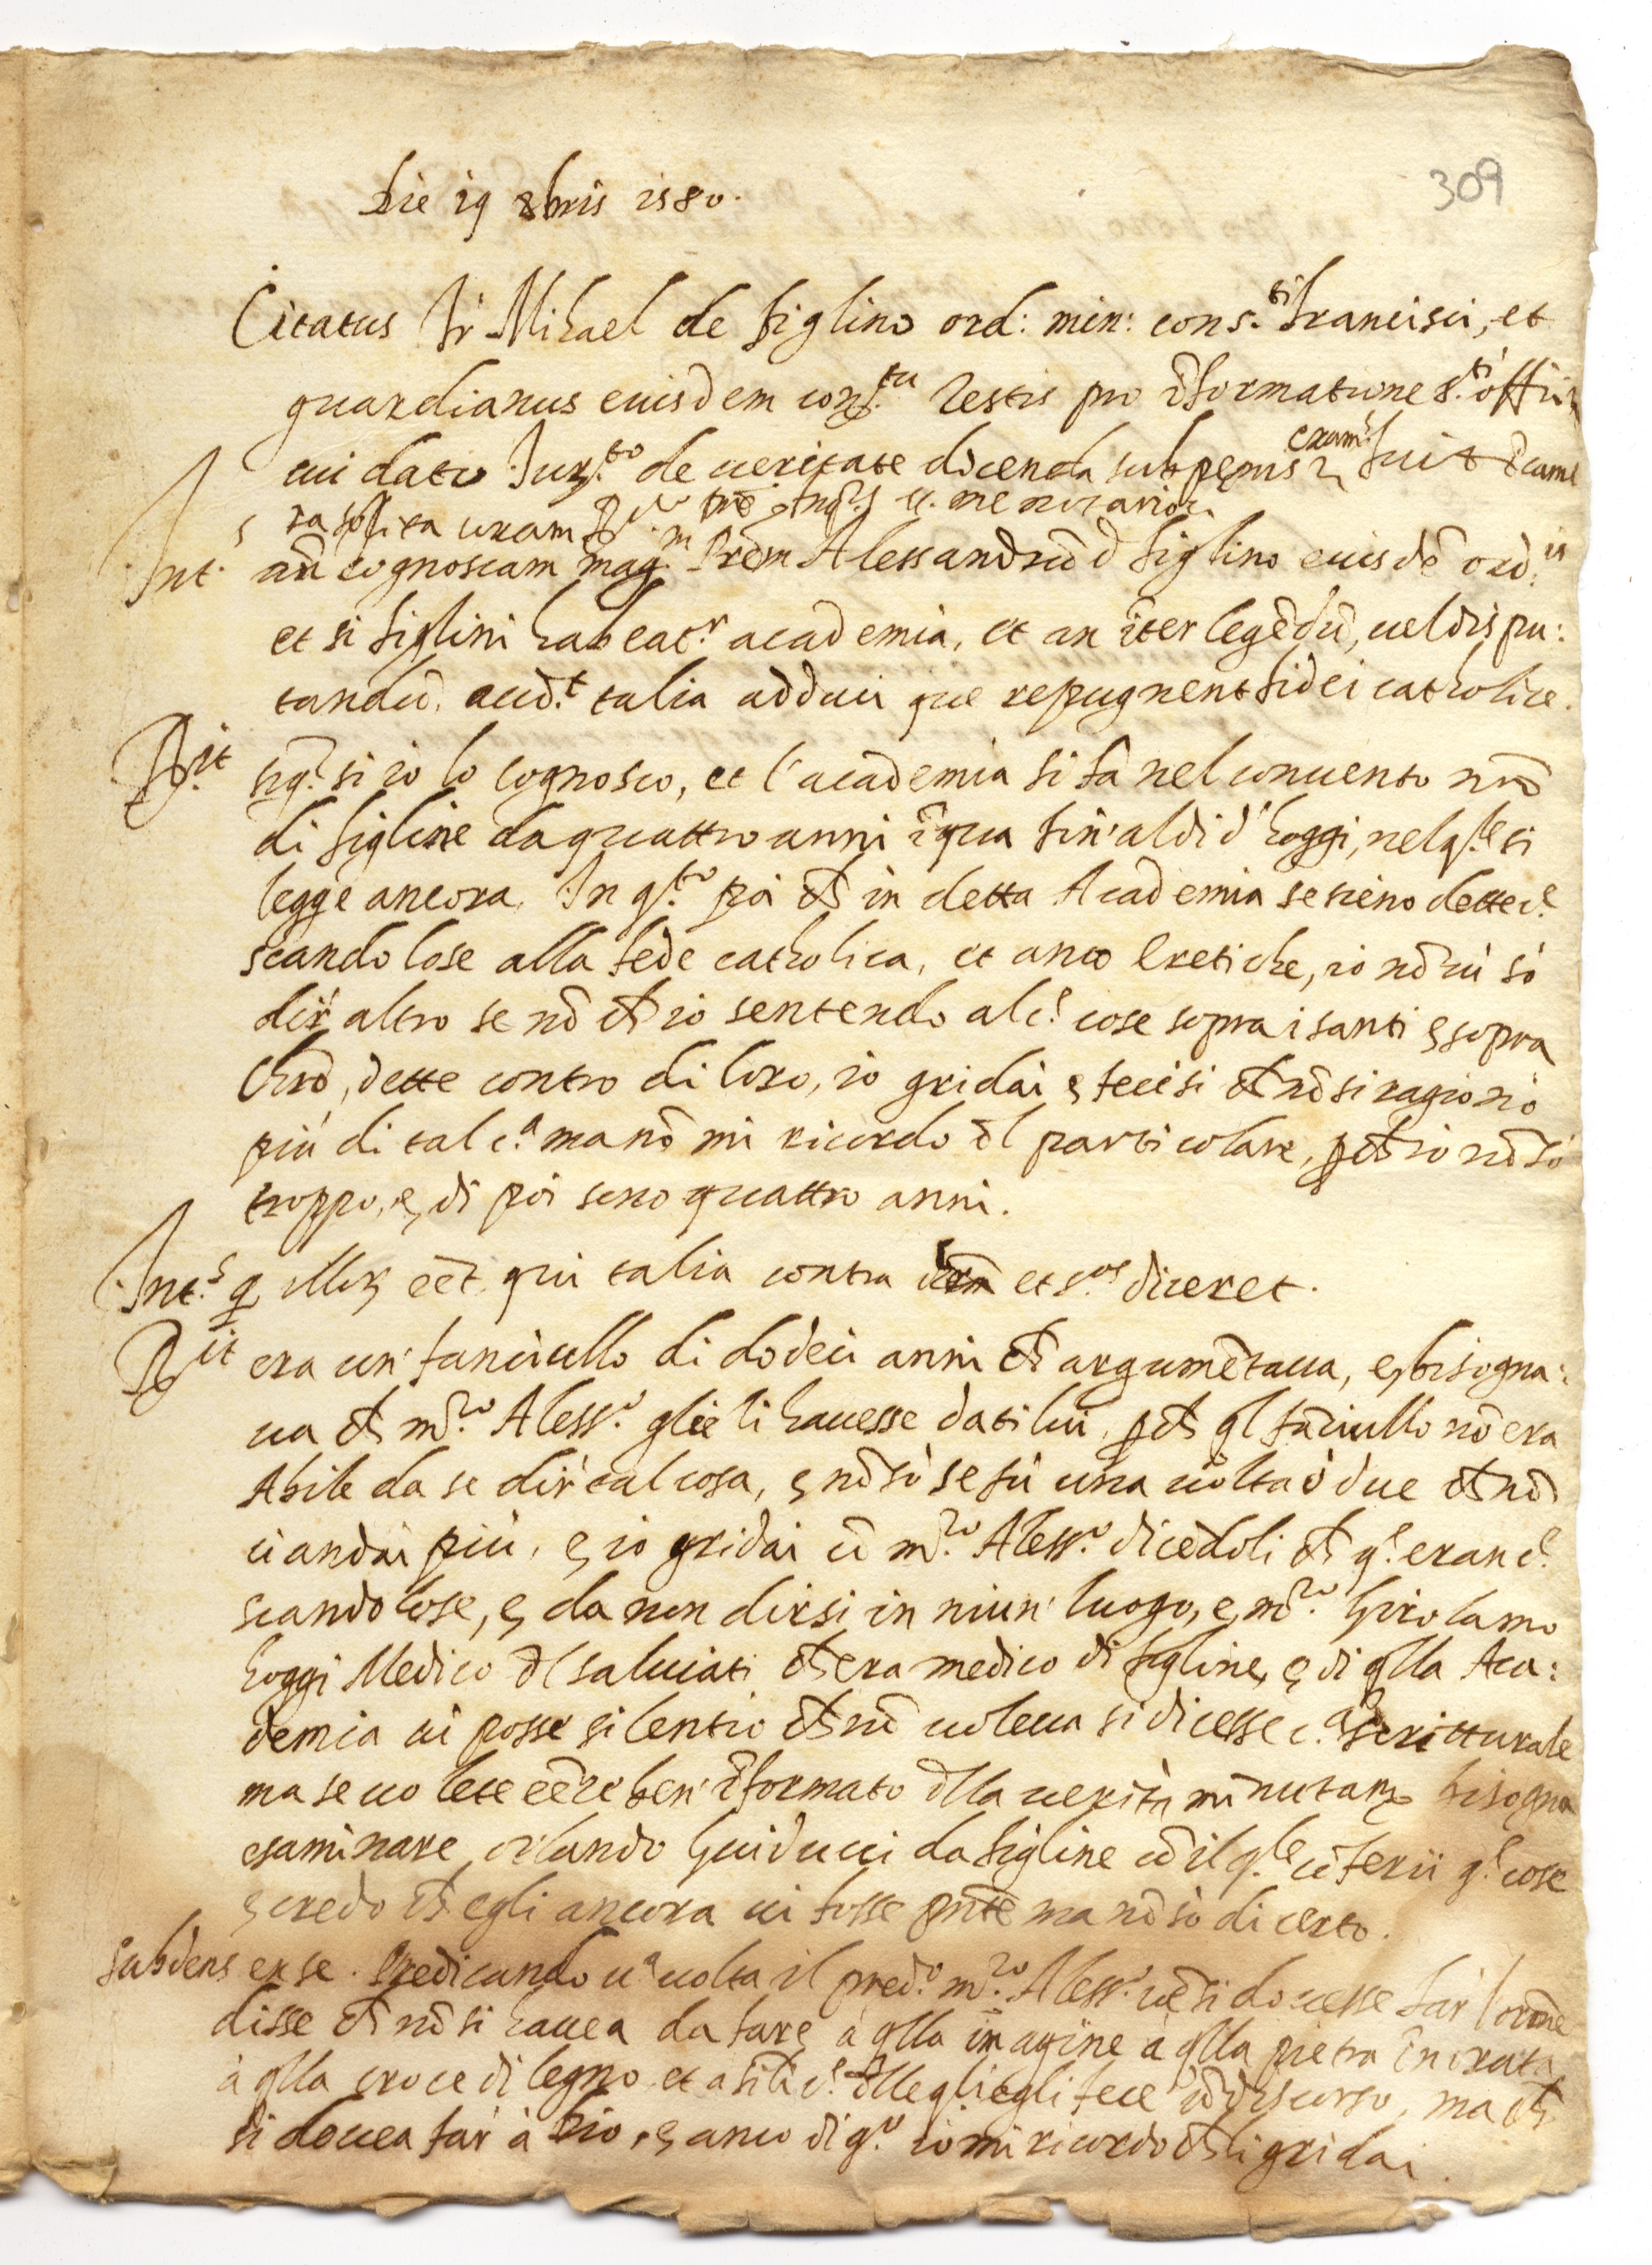 309
Die 19 8bris 1580.
Citatus fr Mihael de figlino ord: min: cons.ti francisci, et
guardianus euisdem con.tu Testis pro īformatione S.ti offitij
cui dato Jur.to de ueritate dicenda sub penis exam. fuit
coram
Int.s an cognoscam mag.m Prem Alessandrū d figlino euisdē ord.is
et si figlini habeat.r academia, et an īter legēdū, uel dispu:
tandū. aud.t talia adduci que repugnent fidei catholice.
R.it sig.r si io lo cognosco, et l'academia si fà nel conuento nrō
di figline da quattro anni ī qua fin' al dì d'hoggi, nel q.le si
legge ancora. In q.to poi ch in detta Academia se sieno dette c.e
scandolose alla fede catholica, et anco Eretiche, io nō ui sò
dir altro se nō ch io sentendo alc.e cose sopra i santi e sopra
Chrō, dette contro di loro, io gridai e feci si ch nō si ragionò
più di tal c.a ma nō mi ricordo īl particolare, pch io nō sò
troppo, e di poi sono quattro anni.
Int.s q illor eēt qui talia contra et s.os diceret.
R.it era un' fanciullo di dodeci anni ch argumētaua, e bisogna:
ua ch m.ro Aless.o glie li hauesse dati lui, pch ql fāciullo nō era
Abile da se dir tal cosa, e nō sò se fù una uolta ò due ch nō
ci andai più, e io gridai cō m.ro Aless.o dicēdoli ch q.e eran c.e
scandolose, e da non dirsi in niun' luogo, e m.ro Girolamo
hoggi Medico d Saluiati ch era medico di figline, e di qlla Aca:
demia ui posse silentio ch nō uoleua si dicesse c.a scritturale
ma se uolete eēre ben' īformato dlla uerità minutam bisogna
esaminare orlando Guiducci da figline cō il q.le cōferij q.e cose
e credo ch egli ancora ui fosse pnte ma nō sò di certo.
Subdens ex se. Predicando u.a uolta il pred.o m.ro Aless.o si douesse far l'orōne
disse ch nō si hauea da fare à qlla imagine à qlla pietra
à qlla croce di legno et a simili c.e dlle qli egli fece discorso, ma ch
si douea far à Dio, e anco di q.o io mi ricordo ch li gridai.